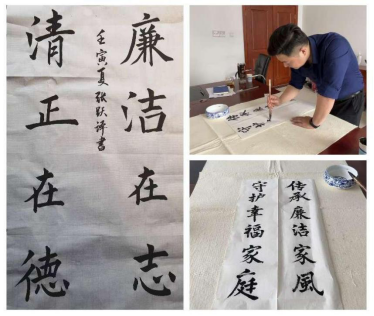 廉洁在志
清正在德
壬寅夏张跃祥书
传承廉洁家风
守护幸福家庭